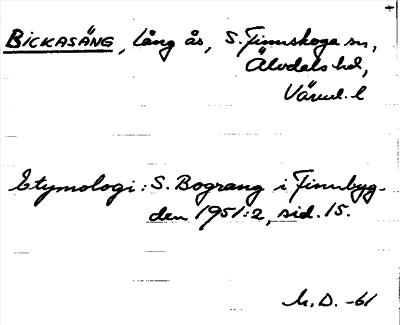 BICKASÄNG, lång ås, S. Finnskoga sn,
Älvdals hd,
Värml. l
Etymologi: S. Bograng i Finnbyg-
den 1951:2, sid. 15.
M.D. -61